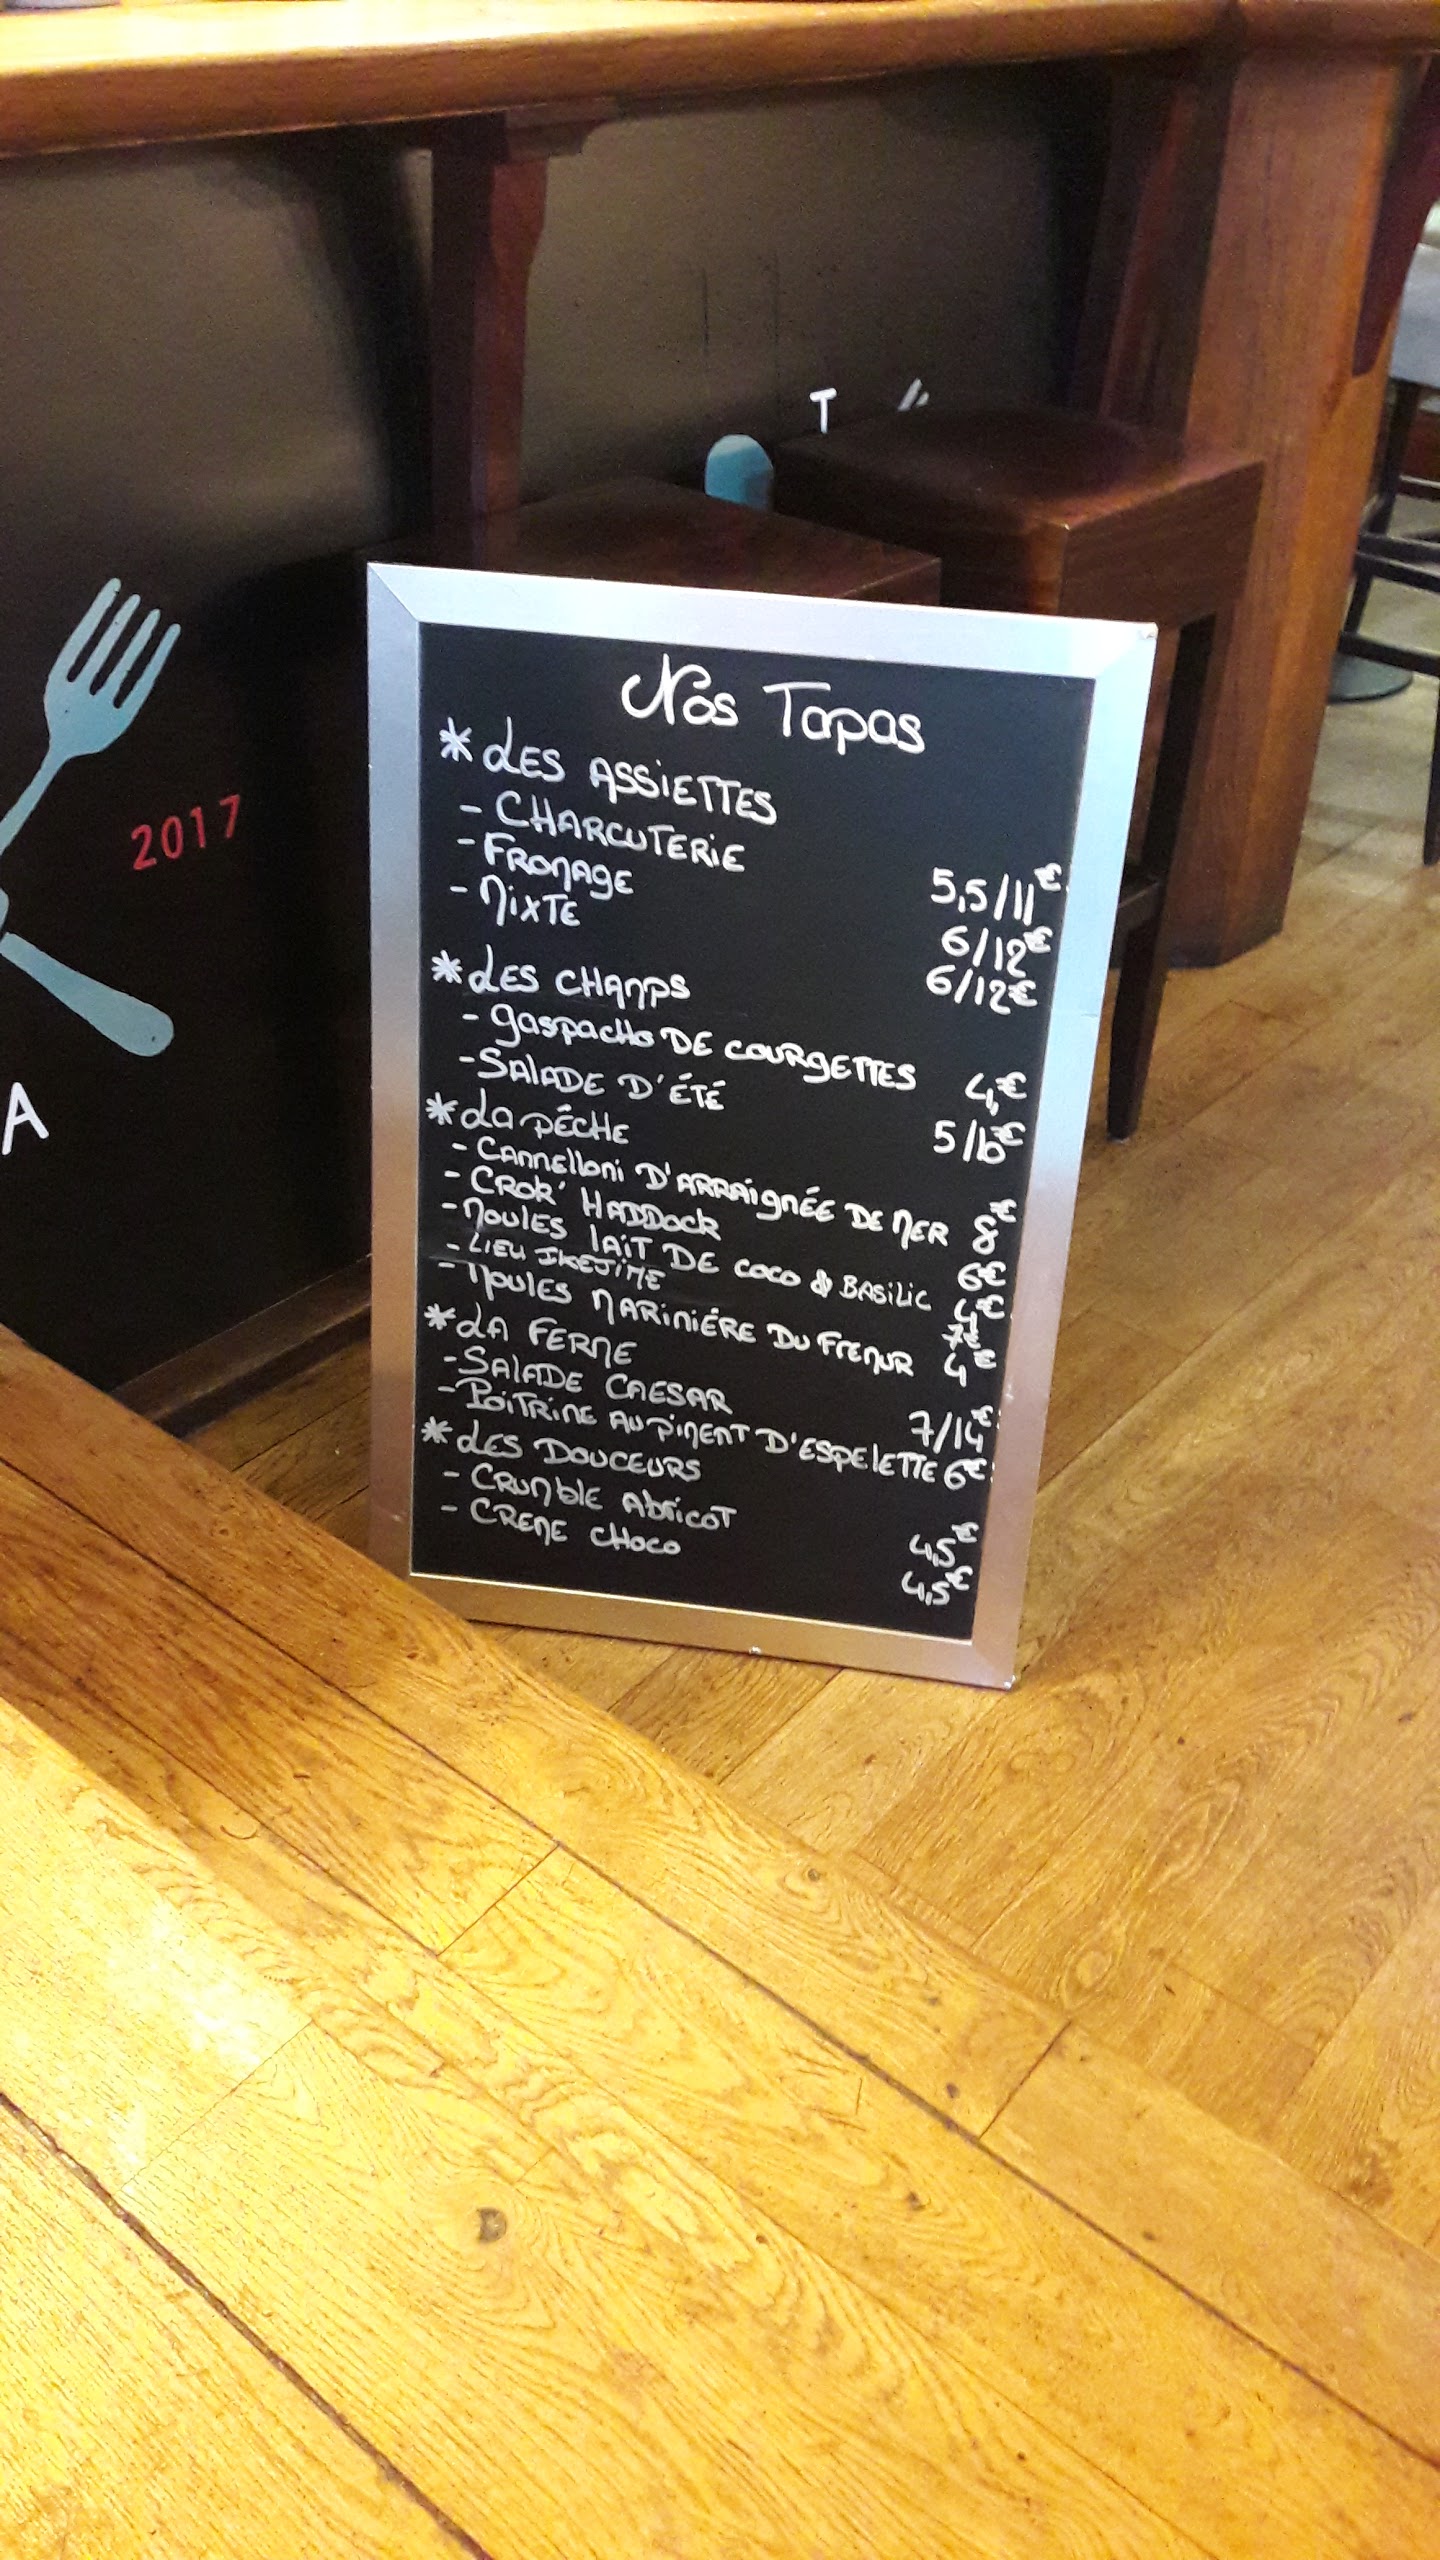 Nos Tapas
* LES ASSIETTES
- CHARCUTERIE 5,5/11€
- FROMAGE 6/12€
- MIXTE 6/12€
* LES CHAMPS
- gaspacho DE COURGETTES 4,€
- SALADE D'ÉTÉ 5/10€
* La PÉCHE
- CANNELLONI D'ARRAIGNÉE DE MER 8€
- CROK' HADDOCK 6€
- MOULES LAIT DE COCO & BASILIC 4€
- LIEU IKEJIME 7€
- MOULES MARINIÉRE DU FREMUR 4€
* LA FERME
- SALADE CAESAR 7/14€
- POITRINE AU PIMENT D'ESPELETTE 6€
* LES DOUCEURS
- CRUMBLE ABRICOT 4,5€
- CREME CHOCO 4,5€
2017
A
T